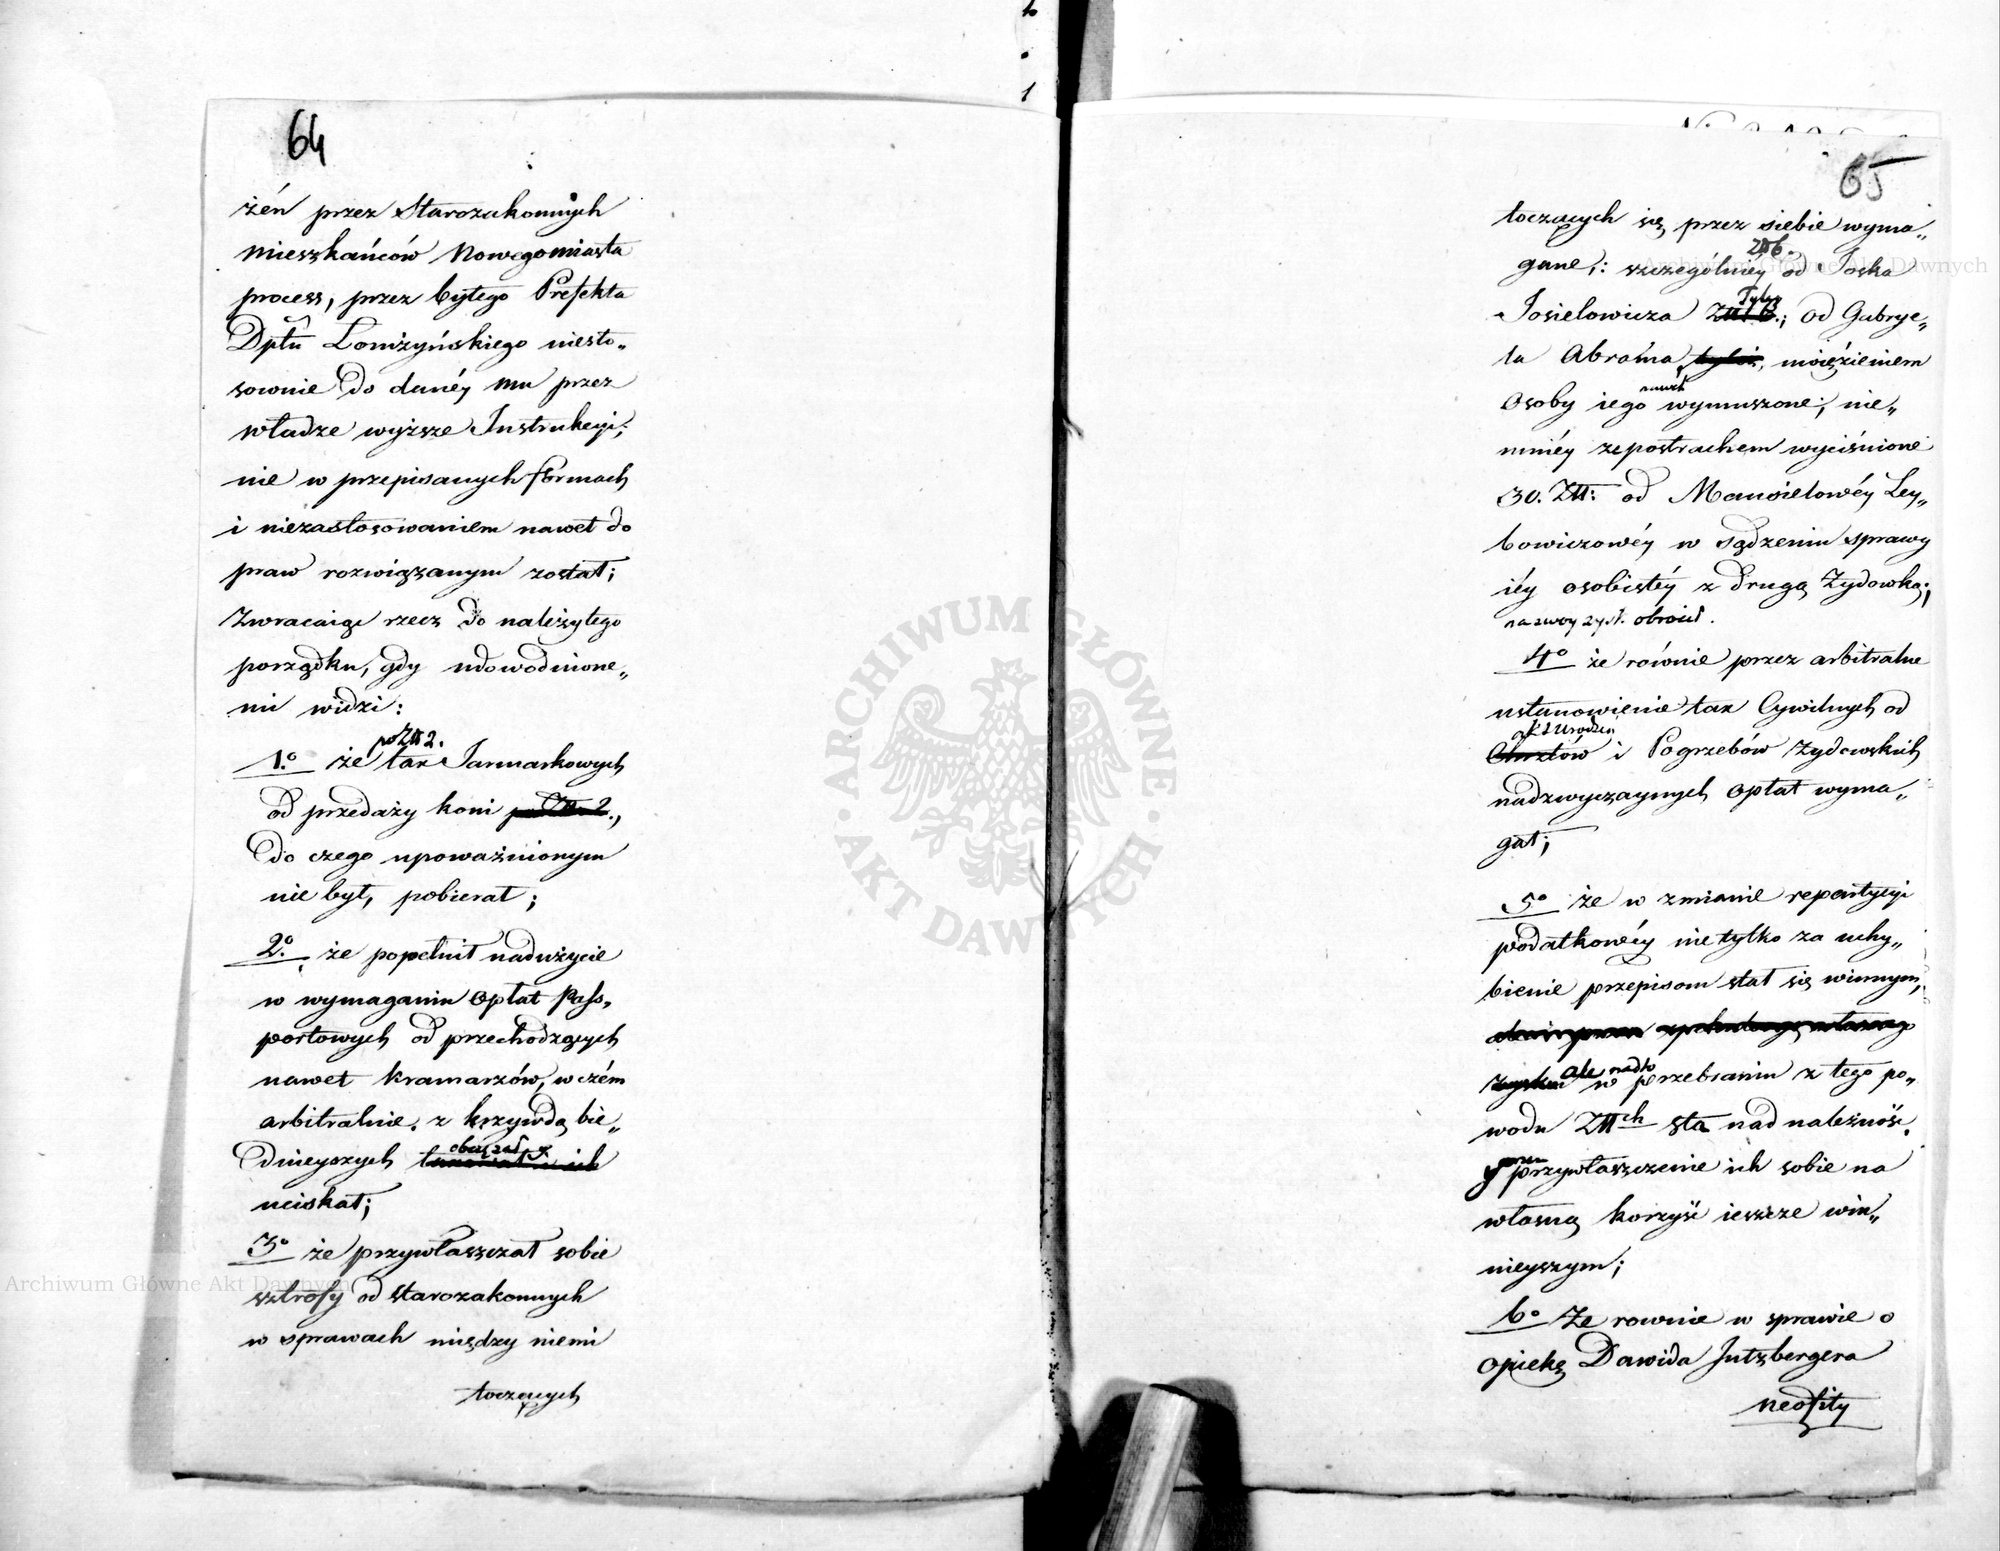 64
żén przez Starozakonnych
mieszkańców Nowegomiasta
process, przez byłego Prefekta
Dptu Łomżyńskiego niesto„
sownie do danéy mu przez
władze wyższe Instrukcyi;
nie w przepisanych formach
i niezastosowaniem nawet do
praw rozwiązanym został;
Zwracaiąc rzecz do należytego
porządku, gdy udowodnione„
mi widzi:
po Złł 2.
1.º że tax Jarmarkowych
od przedaży koni po Złł 2.,
do czego upoważnionym
nie był, pobierał;
2.º że popełnił nadużycie
w wymaganiu opłat Pass„
portowych od przechodzących
nawet kramarzów, w czém
arbitralnie, z krzywdą bie„
dnieyszych
uciskał;
3º że przywłaszczał sobie
sztrofy od starozakonnych
w sprawach między niemi
toczących
65
toczących się przez siebie wyma„
Złł 6.
gane,: szczególniey od Joska
Tylży
Josielowicza Złł 6.; od Gabrye„
la Abrama, więzieniem
nawet
Osoby iego wymuszone; nie„
mniéy zepostrachem wyciśnione
30. Złł: od Mansielowéy Ley„
bowiczowéy w sądzeniu sprawy
iéy osobistéy z drugą Żydowką;
na swoy zysk obrócił.
4º że równie przez arbitralne
ustanowienie tax Cywilnych od
akt Urodzin
Chrztów i Pogrzebów Żydowskich
nadzwyczaynych opłat wyma„
gał;
5º że w zmianie repartycyi
podatkowéy nietylko za uchy„
bienie przepisom stał się winnym,
ale nadto
zysku w przebraniu z tego po„
wodu Złłch sta nad należność,
przywłaszczenie ich sobie na
własną korzyść ieszcze win„
nieyszym;
6º Że rownie w sprawie o
opiekę Dawida Jutzbergera
neofity
ARCHIWUM GŁÓWNE AKT DAWNYCH
Archiwum Główne Akt Dawnych
Archiwum Główne Akt Dawnych